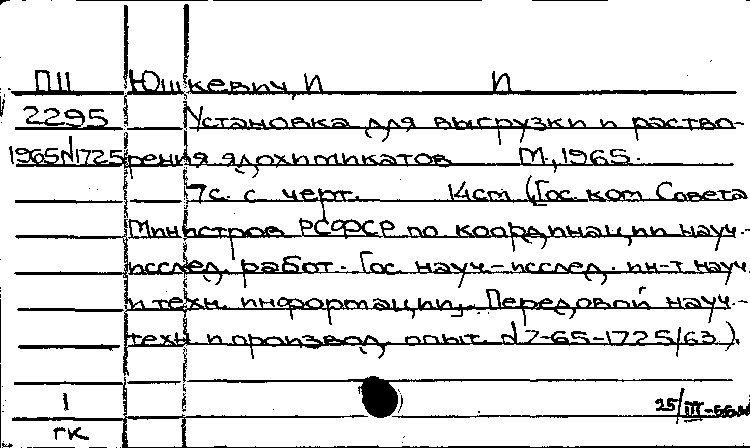 П11 Юшкевич, И П
2295 Установка для выгрузки и раство-
1965N1725 рения ядохимикатов М, 1965.
7с. с черт. 14cm (Гос. ком. Совета
Министров РСФСР по координации науч.-
исслед. работ. Гос. науч.-исслед. ин-т науч.
и техн. информации. Передовой науч.-
техн. и производ. опыт. N7-65-1725/63).
1 25/III-66
ГК